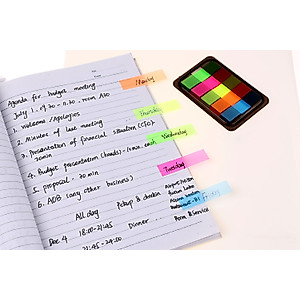 Agenda for budget meeting
July 1, 9.30 - 11.30, room A10
1. Welcome /Apologies
2. Minutes of last meeting
3. Presentation of financial situation (CFO)
20min
4. Budget presentation (heads) - 10min each
5. proposal - 30 min
6. AOB (any other business)
All day
Pickup & check in
Dec 4 18:00-21:45 Dinner
21:45 - 24:00
Room & Service
Monday
Thursday
Wednesday
Tuesday